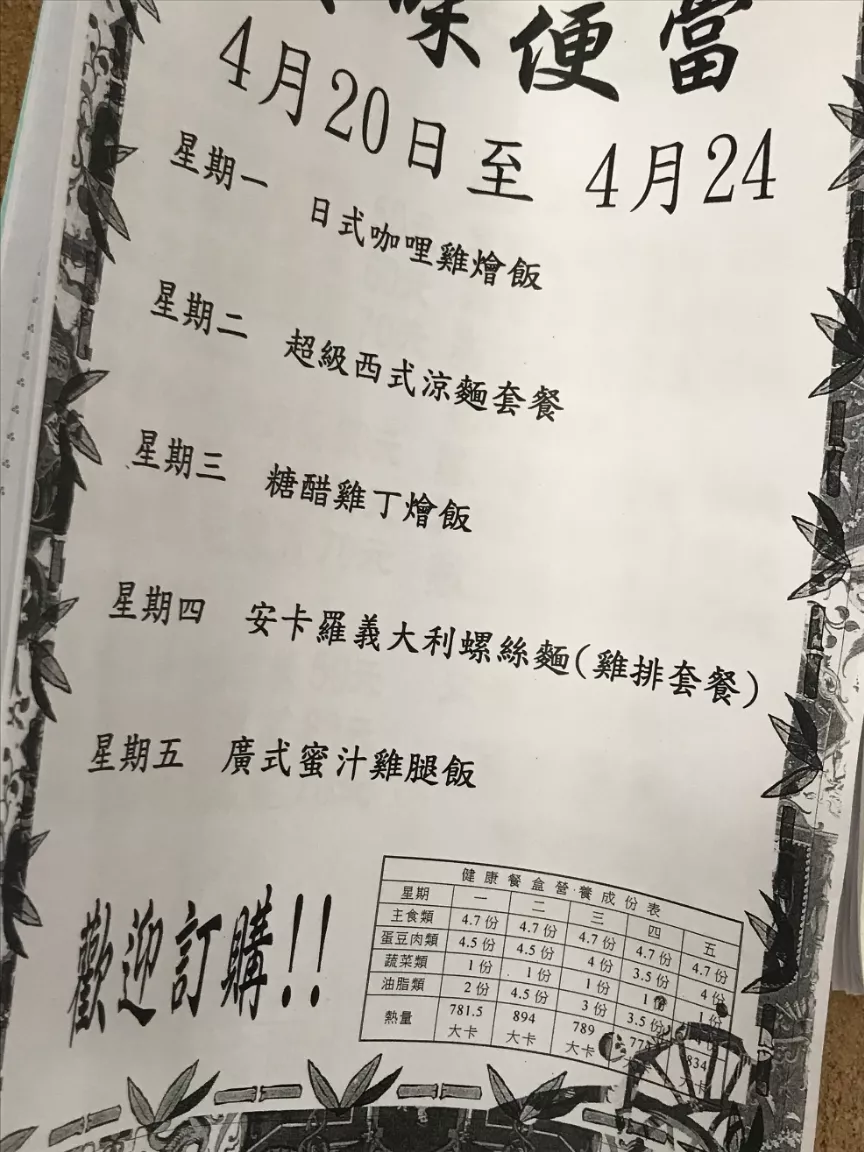 味便當
4月20日至 4月24
星期一 日式咖哩雞燴飯
星期二 超級西式涼麵套餐
星期三 糖醋雞丁燴飯
星期四 安卡羅義大利螺絲麵(雞排套餐)
星期五 廣式蜜汁雞腿飯
歡迎訂購!!
健康餐盒營養成份表
星期 一 二 三 四 五
主食類 4.7份 4.7份 4.7份 4.7份 4.7份
蛋豆肉類 4.5份 4.5份 4份 3.5份 4份
蔬菜類 1份 1份 1份 1份 1份
油脂類 2份 4.5份 3份 3.5份
熱量 781.5大卡 894大卡 789大卡 834大卡